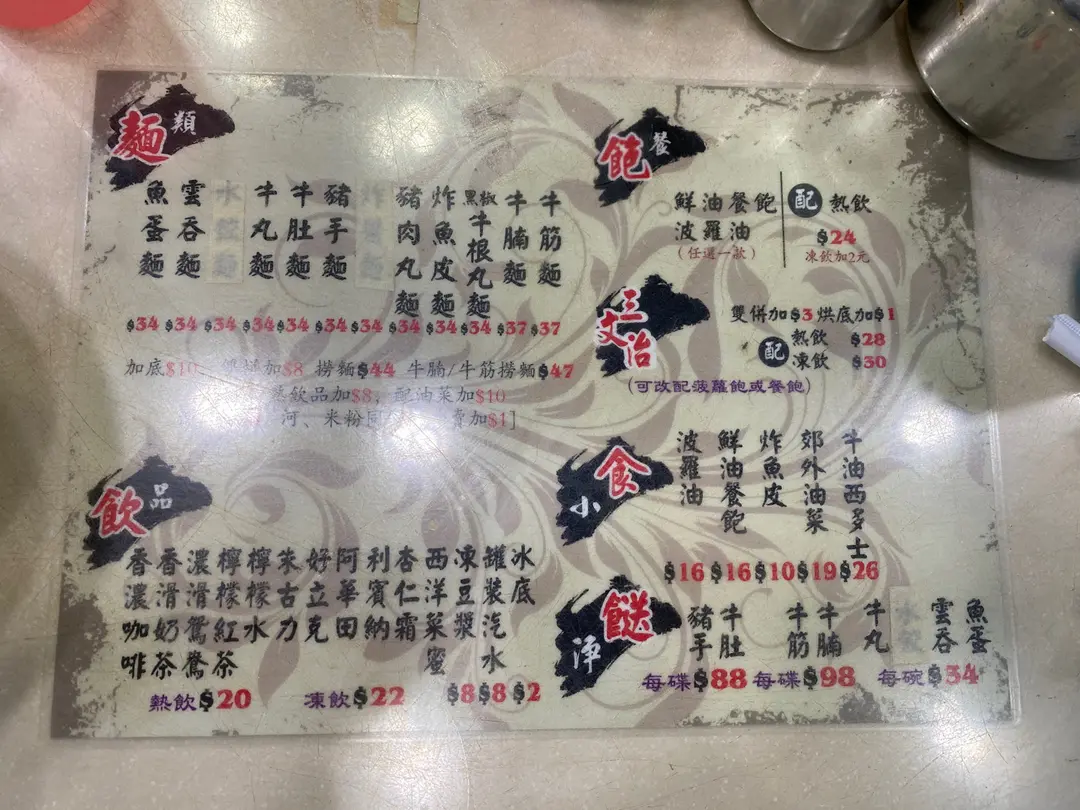 麵類
魚蛋麵
雲吞麵
水餃麵
牛丸麵
牛肚麵
豬手麵
豬肉丸麵
炸魚皮麵
黑椒牛根丸麵
牛腩麵
牛筋麵
$34 $34 $34 $34 $34 $34 $34 $34 $34 $34 $37 $37
加底$10 雙拼加$8 撈麵$44 牛腩/牛筋撈麵$47
飲品加$8，配油菜加$10
河、米粉同 加$1]
飲品
香濃咖啡
香滑奶茶
濃滑鴛鴦
檸檬紅茶
檸檬水
朱古力
好立克
阿華田
利賓納
杏仁霜
西洋菜蜜
凍豆漿
罐裝汽水
冰底
熱飲$20 凍飲$22 $8 $8 $2
飽餐
鮮油餐飽
波羅油
(任選一款)
配熱飲
$24
凍飲加2元
三文治
雙併加$3 烘底加$1
配 熱飲 $28
凍飲 $30
(可改配菠蘿飽或餐飽)
小食
波羅油
鮮油餐飽
炸魚皮
郊外油菜
牛油西多士
$16 $16 $10 $19 $26
淨餸
豬手
牛肚
牛筋
牛腩
牛丸
雲吞
魚蛋
每碟$88 每碟$98 每碗$34